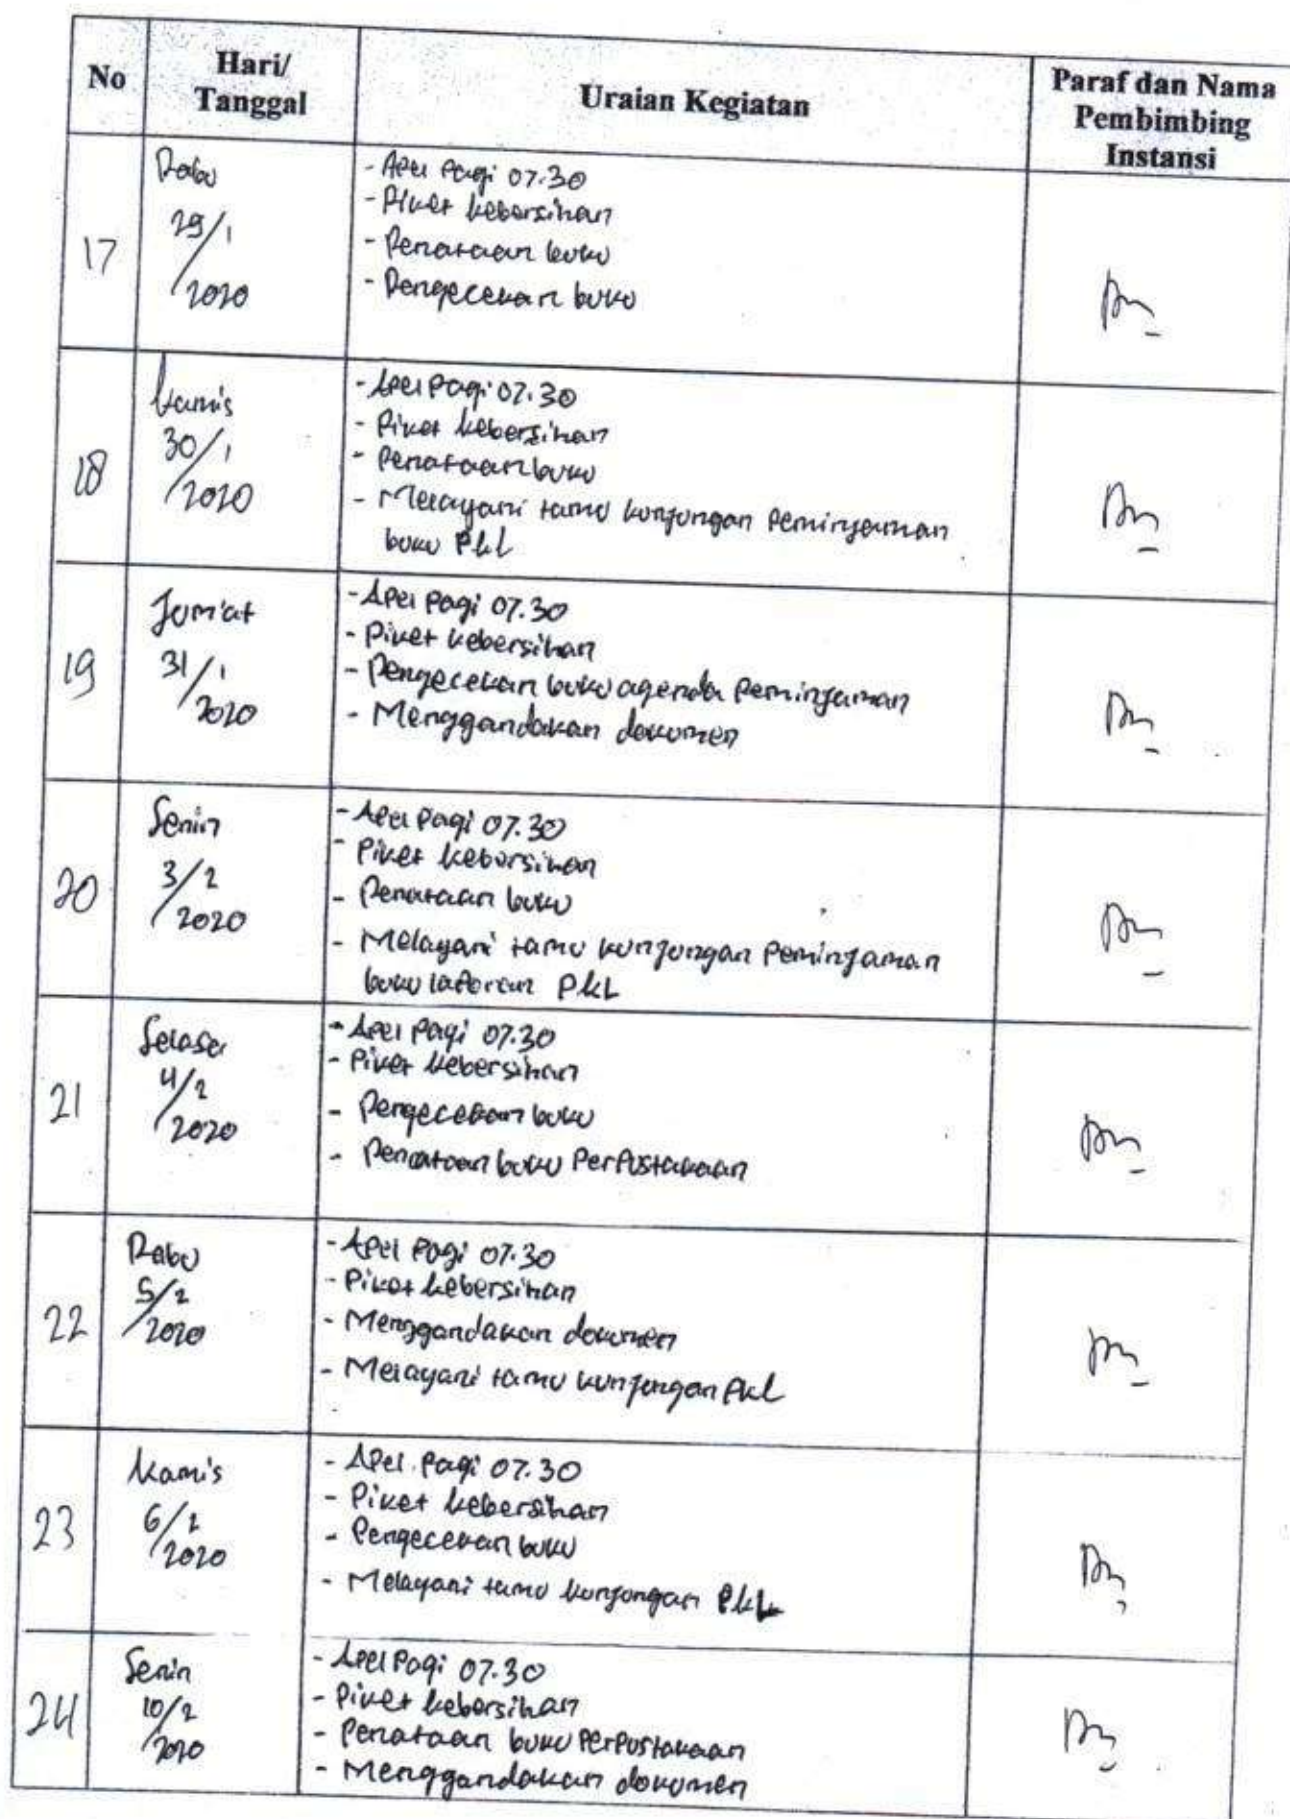 No
Hari/
Tanggal
Uraian Kegiatan
Paraf dan Nama
Pembimbing
Instansi
17
Rabu
29/1
/2020
- Apel Pagi 07.30
- Piket kebersihan
- Penataan buku
- Pengecekan buku
18
Kamis
30/1
/2020
- Apel Pagi 07.30
- Piket kebersihan
- Penataan buku
- Melayani tamu kunjungan Peminjaman
buku PkL
19
Jum'at
31/1
/2020
- Apel Pagi 07.30
- Piket kebersihan
- Pengecekan buku agenda Peminjaman
- Menggandakan dokumen
20
Senin
3/2
/2020
- Apel Pagi 07.30
- Piket kebersihan
- Penataan buku
- Melayani tamu kunjungan Peminjaman
buku laporan PkL
21
Selasa
4/2
/2020
- Apel Pagi 07.30
- Piket kebersihan
- Pengecekan buku
- Penataan buku Perpustakaan
22
Rabu
5/2
/2020
- Apel Pagi 07.30
- Piket kebersihan
- Menggandakan dokumen
- Melayani tamu kunjungan PkL
23
Kamis
6/2
/2020
- Apel Pagi 07.30
- Piket kebersihan
- Pengecekan buku
- Melayani tamu kunjungan PkL
24
Senin
10/2
/2020
- Apel Pagi 07.30
- Piket kebersihan
- Penataan buku Perpustakaan
- Menggandakan dokumen